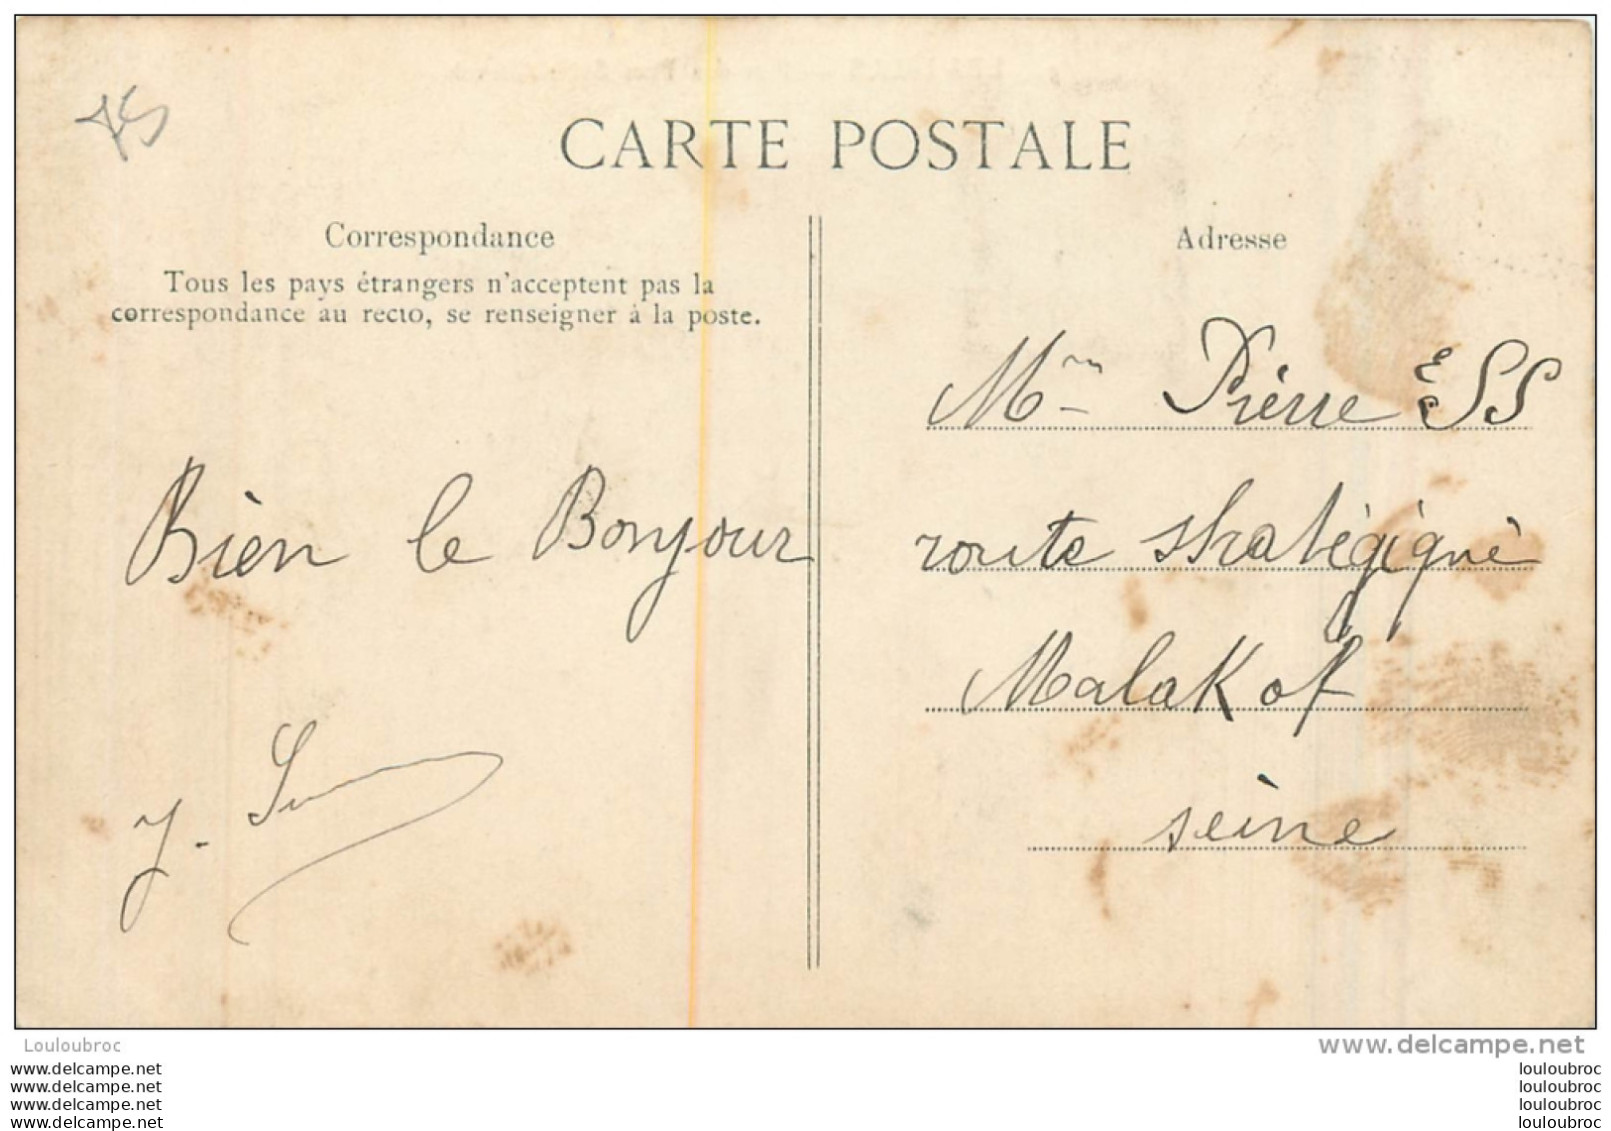 75
CARTE POSTALE
Correspondance
Tous les pays étrangers n'acceptent pas la
correspondance au recto, se renseigner à la poste.
Bien le Bonjour
Adresse
Pierre ESS
route stratégique
Malakof
seine
Louloubroc
www.delcampe.net
www.delcampe.net
www.delcampe.net
www.delcampe.net
www.delcampe.net
louloubroc
louloubroc
louloubroc
louloubroc